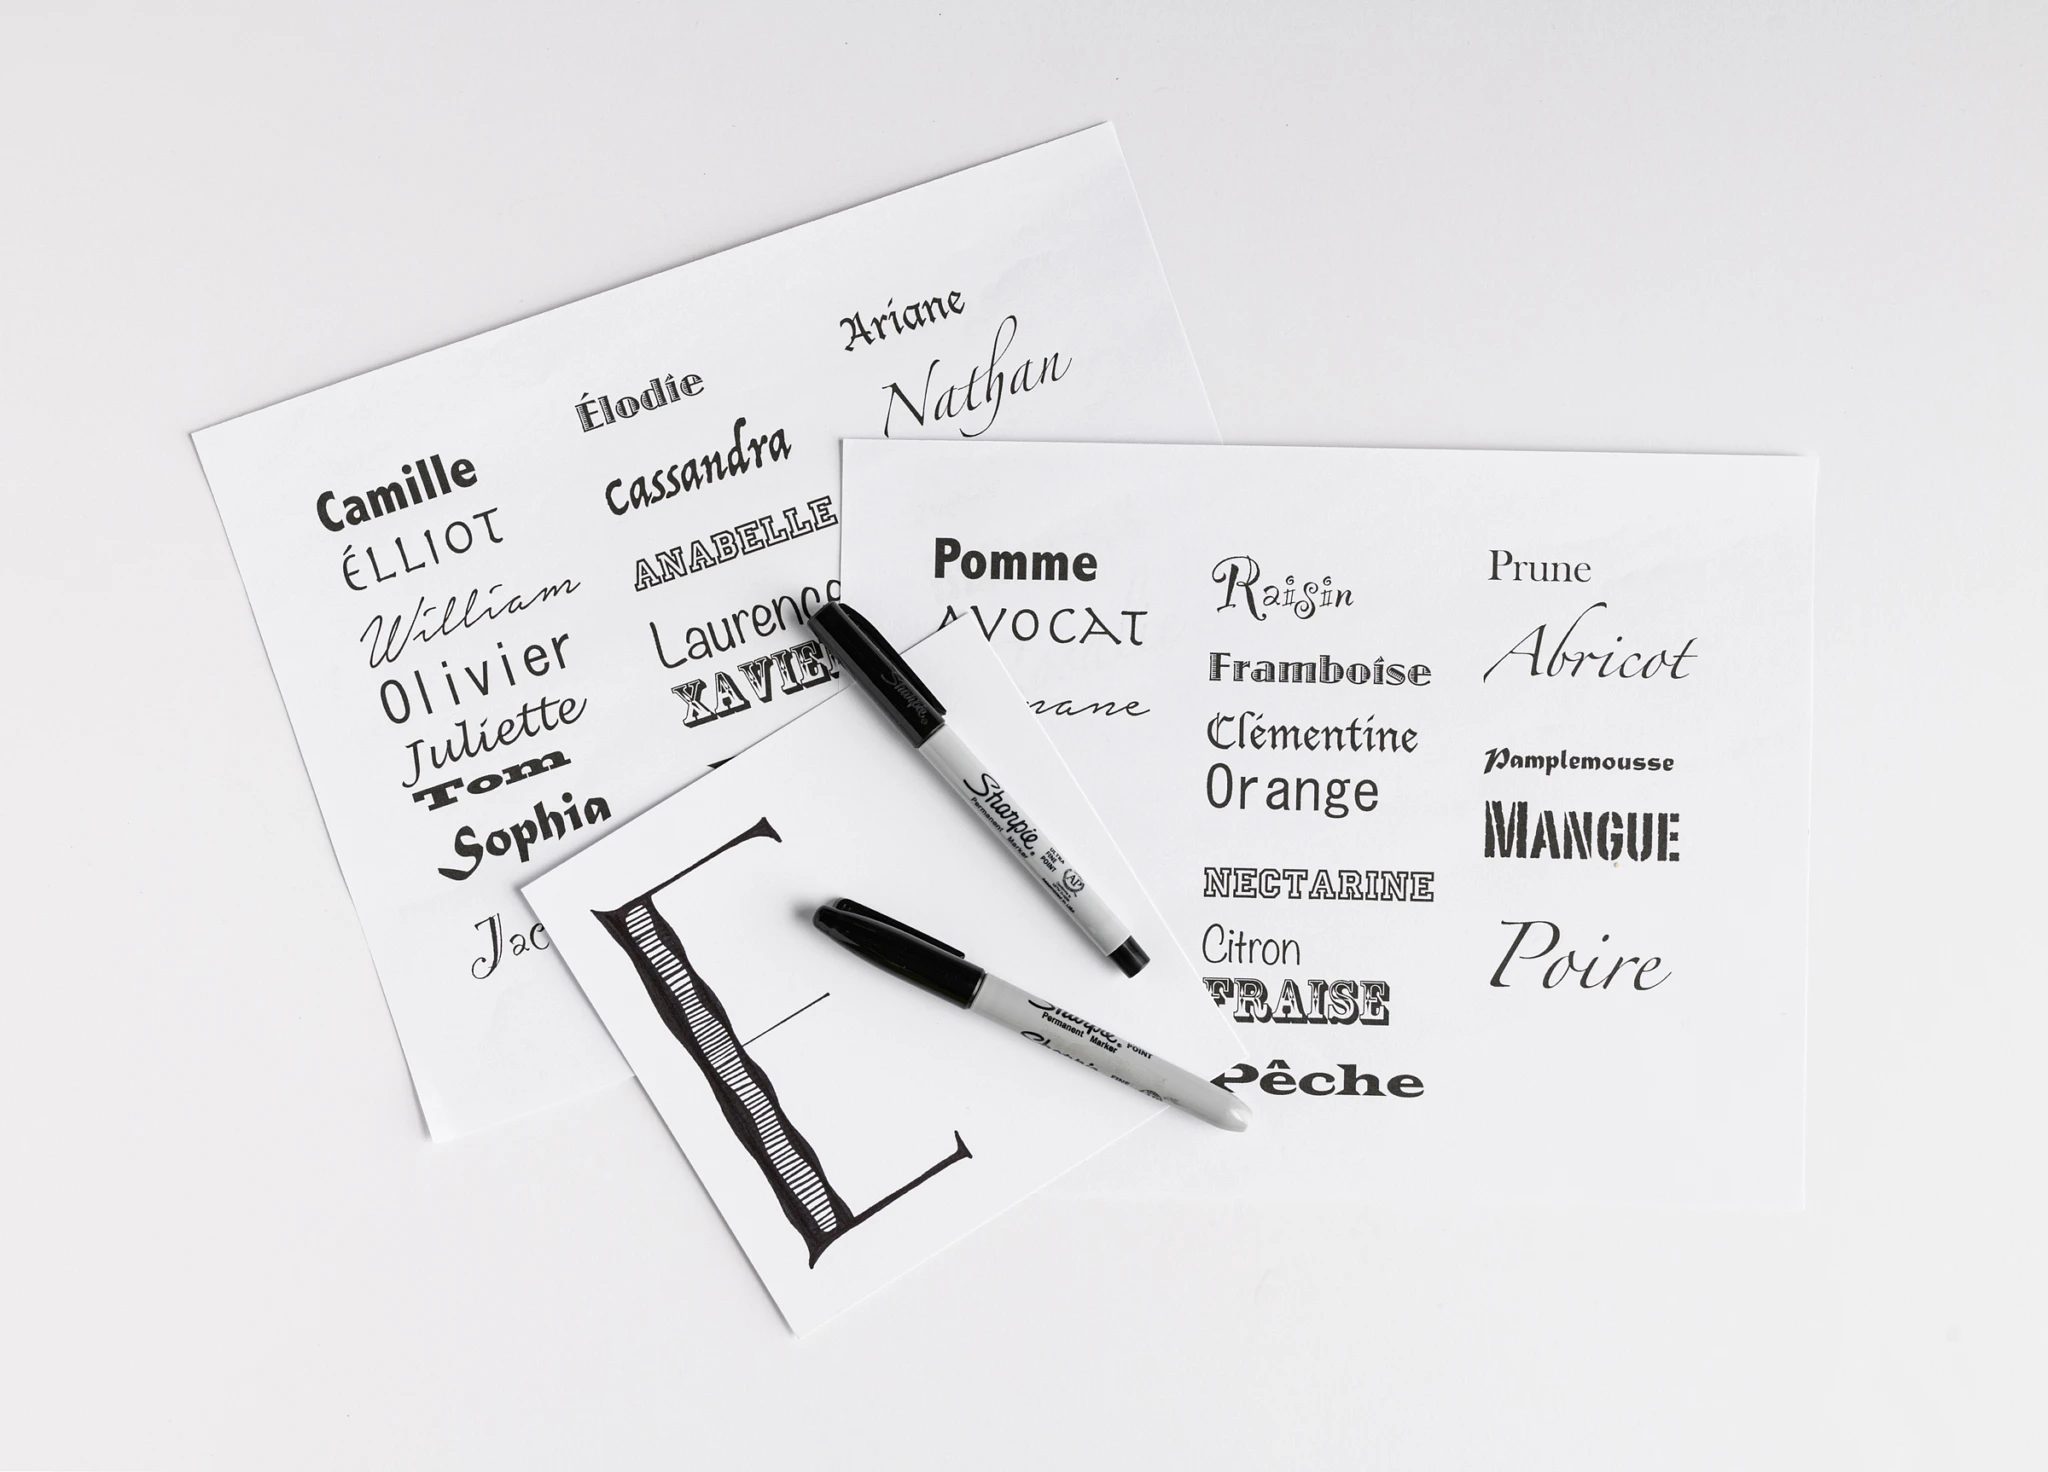 Camille
ÉLLIOT
William
Olivier
Juliette
Tom
Sophia
Élodie
Cassandra
ANABELLE
Laurence
XAVIER
Ariane
Nathan
Pomme
AVOCAT
Raisin
Framboise
Clémentine
Orange
NECTARINE
Citron
FRAISE
Pêche
Prune
Abricot
Pamplemousse
MANGUE
Poire
E
Sharpie
Sharpie
Permanent Marker
ULTRA
FINE
POINT
AP
Sharpie
Permanent Marker
POINT
Sharpie
FINE